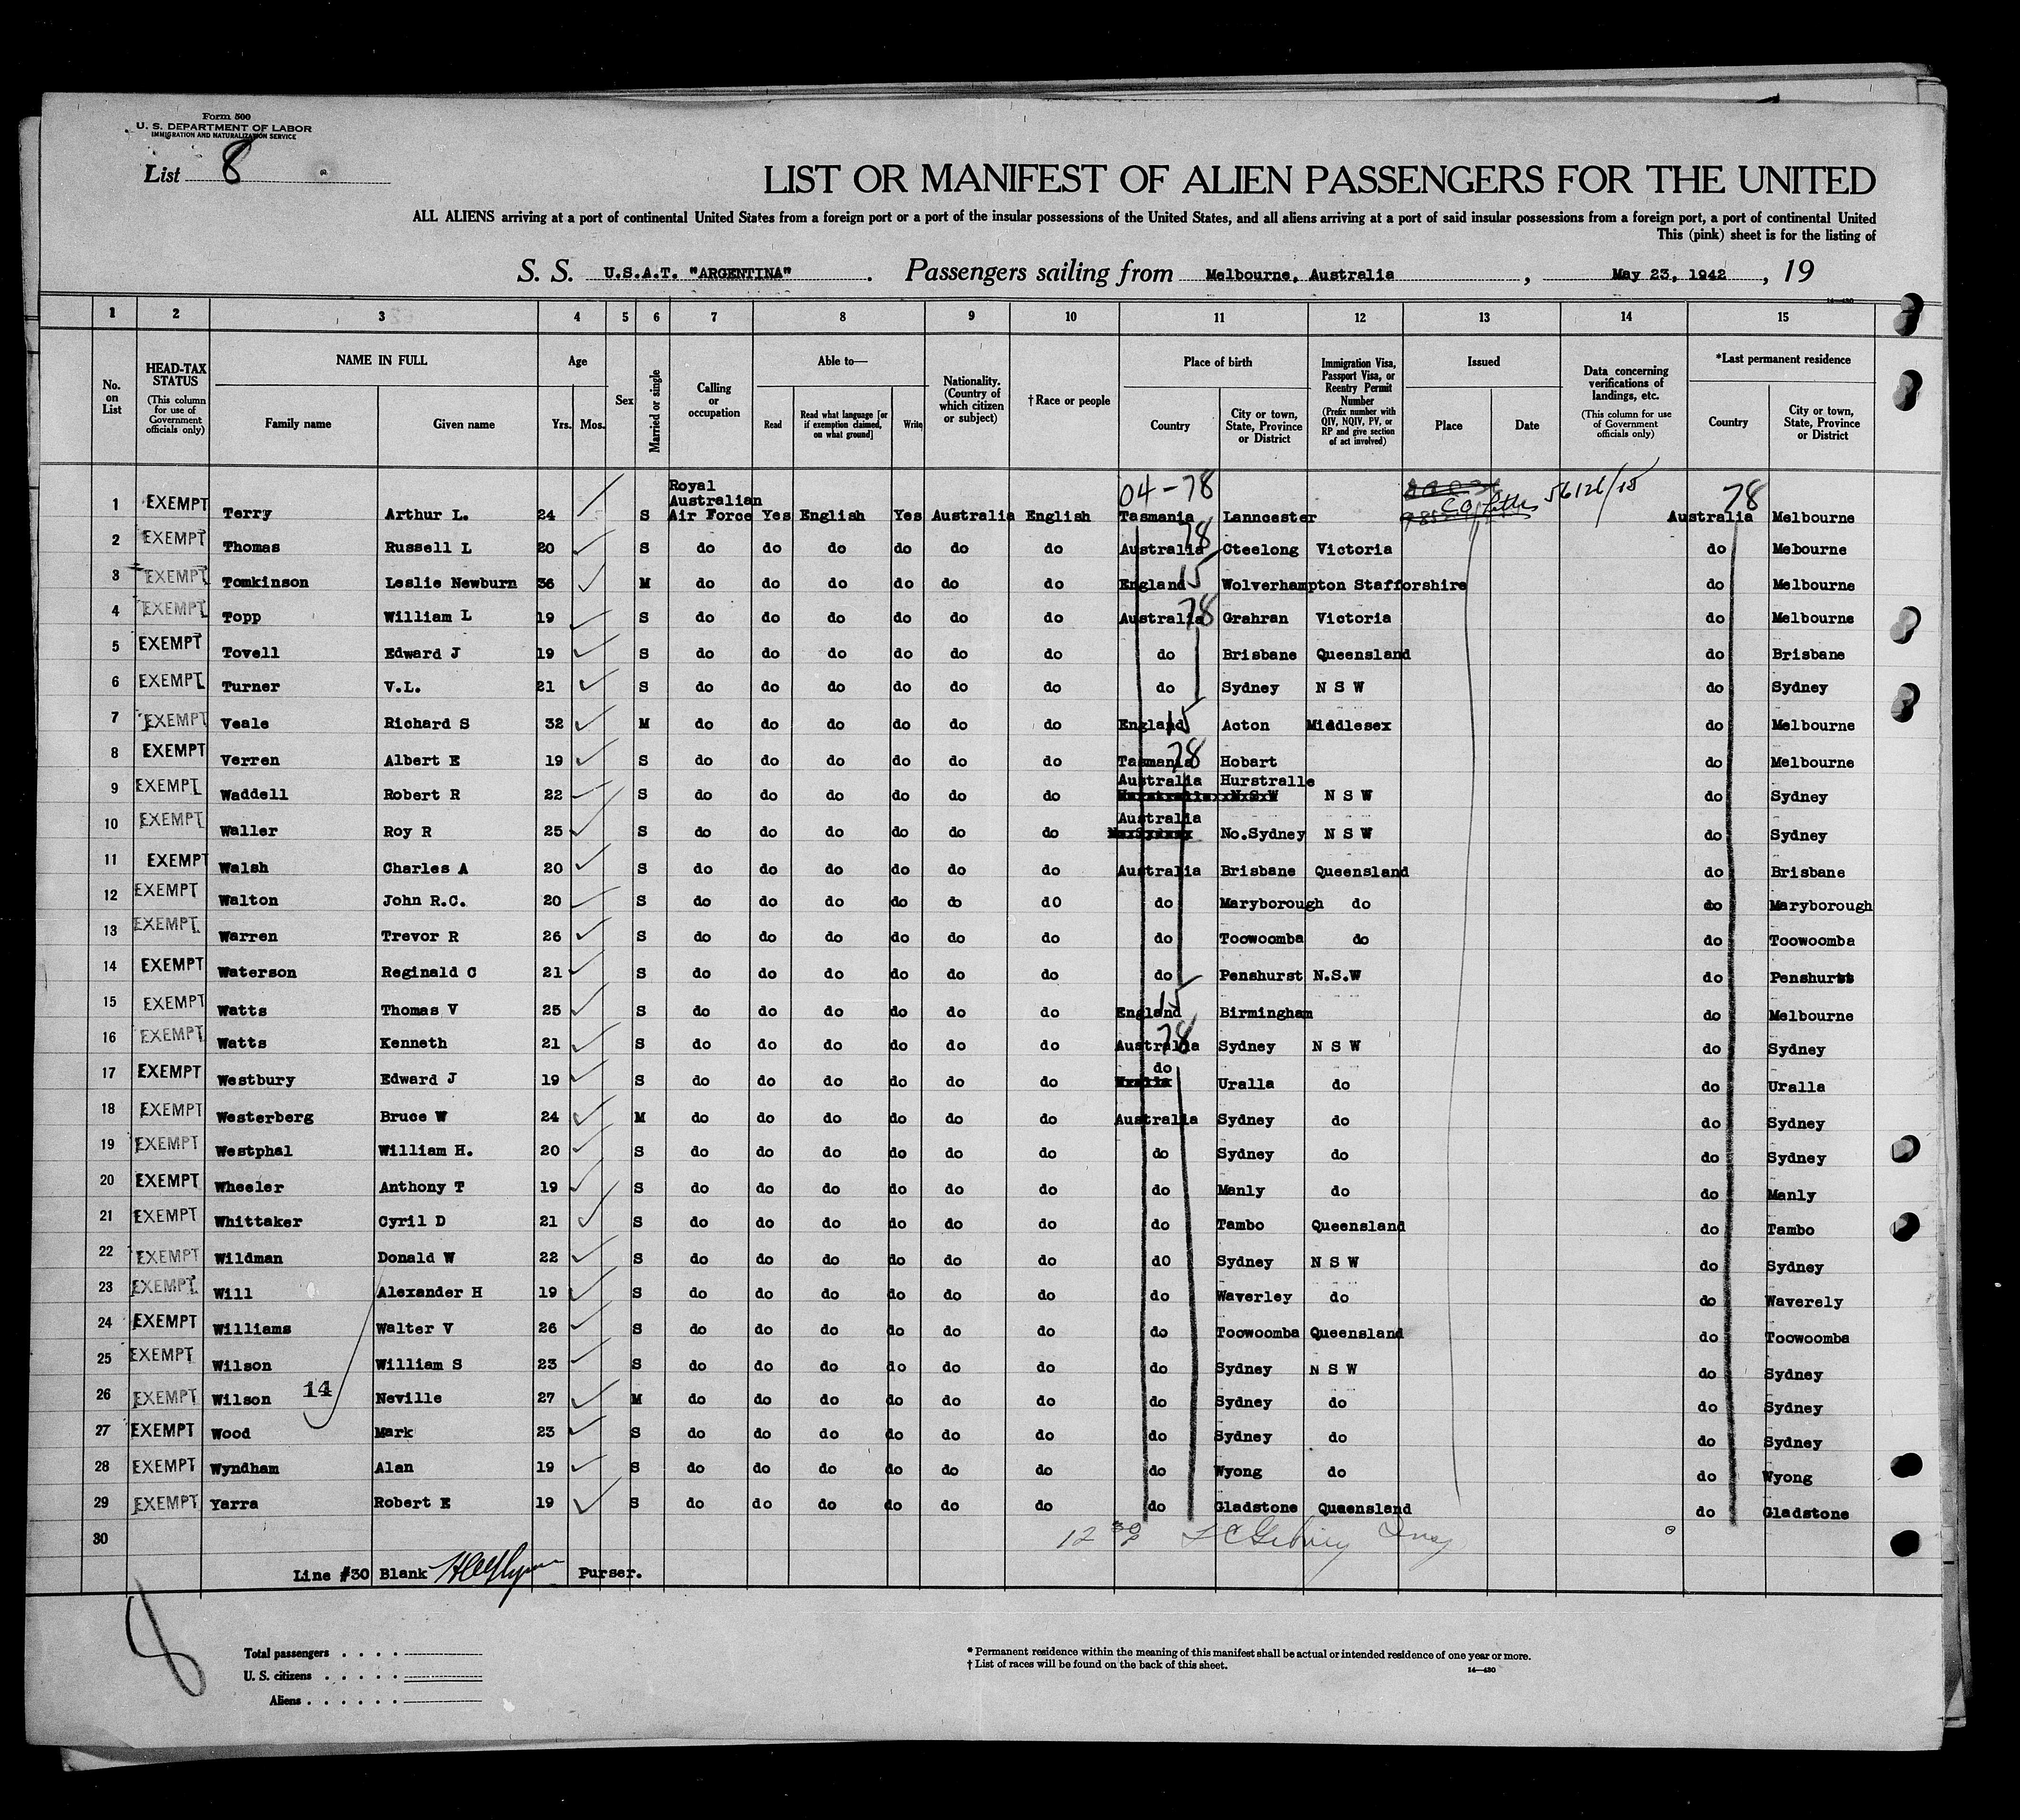 Form 500
U. S. DEPARTMENT OF LABOR
IMMIGRATION AND NATURALIZATION SERVICE
List 8
LIST OR MANIFEST OF ALIEN PASSENGERS FOR THE UNITED
ALL ALIENS arriving at a port of continental United States from a foreign port or a port of the insular possessions of the United States, and all aliens arriving at a port of said insular possessions from a foreign port, a port of continental United
This (pink) sheet is for the listing of
S. S. U.S.A.T. "ARGENTINA" . Passengers sailing from Melbourne, Australia , May 23, 1942 , 19
14—430
1 2 3 4 5 6 7 8 9 10 11 12 13 14 15
No. on List HEAD-TAX STATUS (This column for use of Government officials only) NAME IN FULL Family name Given name Age Yrs. Mos. Sex Married or single Calling or occupation Able to— Read Read what language [or if exemption claimed, on what ground] Write Nationality. (Country of which citizen or subject) †Race or people Place of birth Country City or town, State, Province or District Immigration Visa, Passport Visa, or Reentry Permit Number (Prefix number with QIV, NQIV, PV, or RP and give section of act involved) Issued Place Date Data concerning verifications of landings, etc. (This column for use of Government officials only) *Last permanent residence Country City or town, State, Province or District
04-78 56126/15 78
1 EXEMPT Terry Arthur L. 24 S Royal Australian Air Force Yes English Yes Australia English Tasmania Lanncester Australia Melbourne
2 EXEMPT Thomas Russell L 20 S do do do do do do Australia 78 Cteelong Victoria do Mebourne
3 EXEMPT Tomkinson Leslie Newburn 36 M do do do do do do England 15 Wolverhampton Stafforshire do Melbourne
4 EXEMPT Topp William L 19 S do do do do do do Australia 78 Grahran Victoria do Melbourne
5 EXEMPT Tovell Edward J 19 S do do do do do do do Brisbane Queensland do Brisbane
6 EXEMPT Turner V.L. 21 S do do do do do do do Sydney N S W do Sydney
7 EXEMPT Veale Richard S 32 M do do do do do do England 15 Acton Middlesex do Melbourne
8 EXEMPT Verren Albert E 19 S do do do do do do Tasmania 78 Hobart do Melbourne
9 EXEMPT Waddell Robert R 22 S do do do do do do Australia Hurstralle N S W do Sydney
10 EXEMPT Waller Roy R 25 S do do do do do do Australia No.Sydney N S W do Sydney
11 EXEMPT Walsh Charles A 20 S do do do do do do Australia Brisbane Queensland do Brisbane
12 EXEMPT Walton John R.C. 20 S do do do do do d0 do Maryborough do do Maryborough
13 EXEMPT Warren Trevor R 26 S do do do do do do do Toowoomba do do Toowoomba
14 EXEMPT Waterson Reginald C 21 S do do do do do do do Penshurst N.S.W do Penshurst
15 EXEMPT Watts Thomas V 25 S do do do do do do England 15 Birmingham do Melbourne
16 EXEMPT Watts Kenneth 21 S do do do do do do Australia 78 Sydney N S W do Sydney
17 EXEMPT Westbury Edward J 19 S do do do do do do do Uralla do do Uralla
18 EXEMPT Westerberg Bruce W 24 M do do do do do do Australia Sydney do do Sydney
19 EXEMPT Westphal William H. 20 S do do do do do do do Sydney do do Sydney
20 EXEMPT Wheeler Anthony T 19 S do do do do do do do Manly do do Manly
21 EXEMPT Whittaker Cyril D 21 S do do do do do do do Tambo Queensland do Tambo
22 EXEMPT Wildman Donald W 22 S do do do do do do d0 Sydney N S W do Sydney
23 EXEMPT Will Alexander H 19 S do do do do do do do Waverley do do Waverely
24 EXEMPT Williams Walter V 26 S do do do do do do do Toowoomba Queensland do Toowoomba
25 EXEMPT Wilson William S 23 S do do do do do do do Sydney N S W do Sydney
26 EXEMPT Wilson 14 Neville 27 M do do do do do do do Sydney do do Sydney
27 EXEMPT Wood Mark 23 S do do do do do do do Sydney do do Sydney
28 EXEMPT Wyndham Alan 19 S do do do do do do do Wyong do do Wyong
29 EXEMPT Yarra Robert E 19 S do do do do do do do Gladstone Queensland do Gladstone
30
Line #30 Blank Purser.
8
Total passengers . . . .
U. S. citizens . . . . .
Aliens . . . . . .
* Permanent residence within the meaning of this manifest shall be actual or intended residence of one year or more.
† List of races will be found on the back of this sheet.
14—430